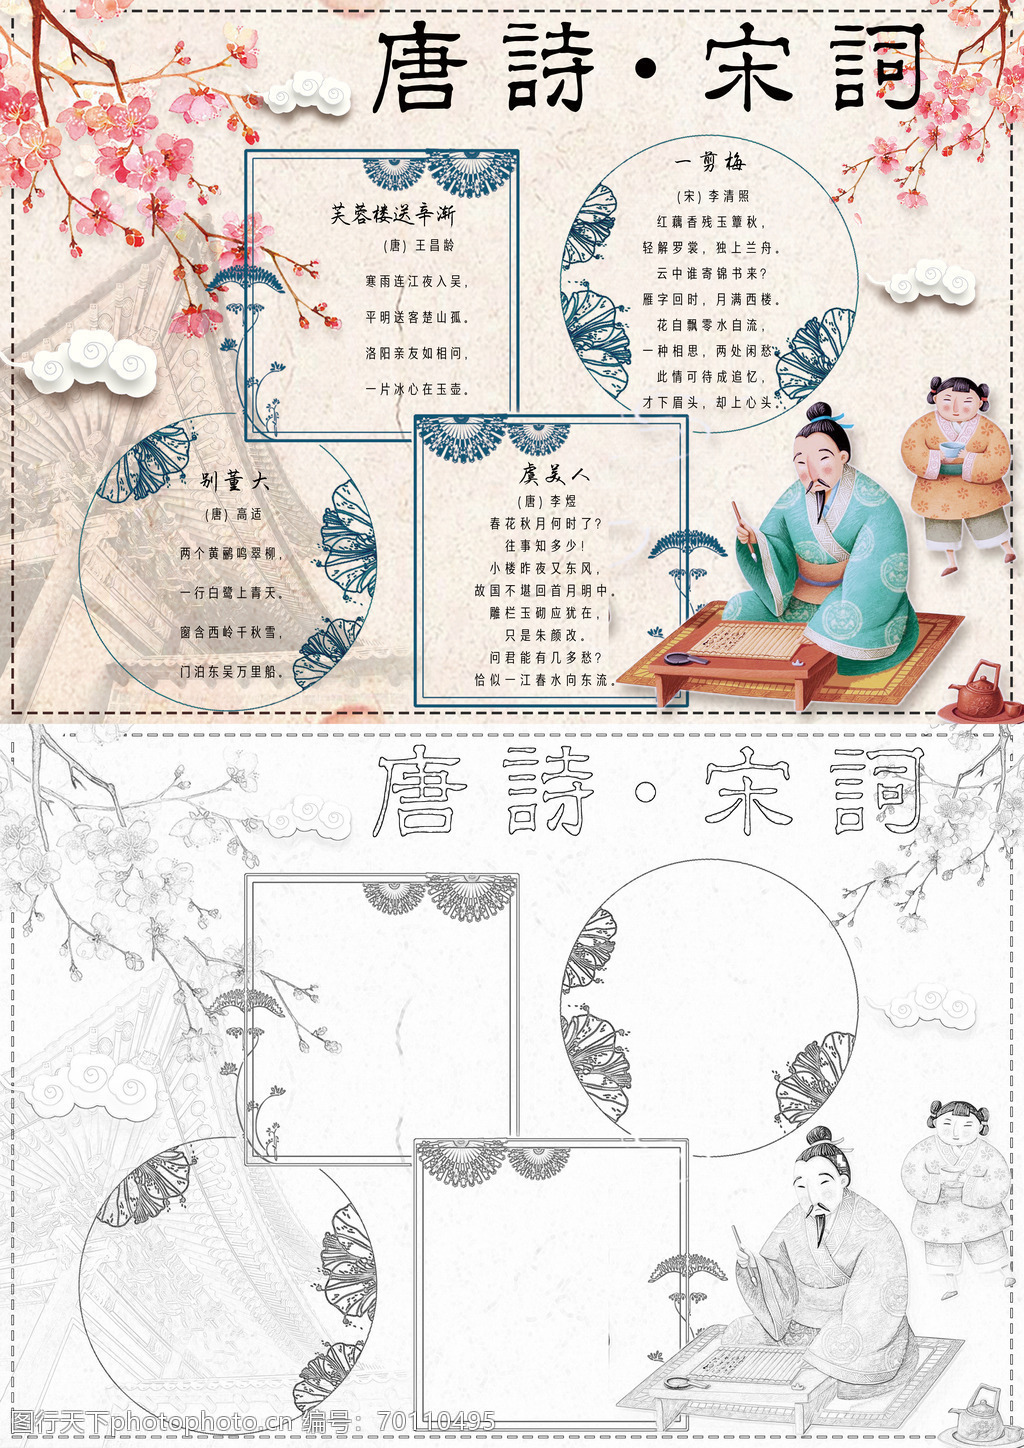 唐詩·宋詞
芙蓉楼送辛渐
(唐) 王昌龄
寒雨连江夜入吴，
平明送客楚山孤。
洛阳亲友如相问，
一片冰心在玉壶。
一剪梅
(宋) 李清照
红藕香残玉簟秋，
轻解罗裳，独上兰舟。
云中谁寄锦书来？
雁字回时，月满西楼。
花自飘零水自流，
一种相思，两处闲愁。
此情可待成追忆，
才下眉头，却上心头。
别董大
(唐) 高适
两个黄鹂鸣翠柳，
一行白鹭上青天。
窗含西岭千秋雪，
门泊东吴万里船。
虞美人
(唐) 李煜
春花秋月何时了？
往事知多少！
小楼昨夜又东风，
故国不堪回首月明中。
雕栏玉砌应犹在，
只是朱颜改。
问君能有几多愁？
恰似一江春水向东流。
唐詩·宋詞
图行天下photophoto.cn 编号：70110495